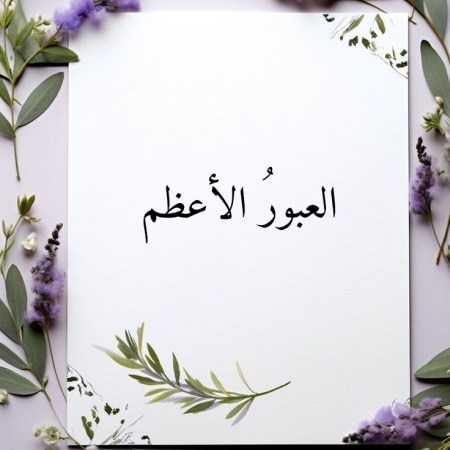 العبورُ الأعظم